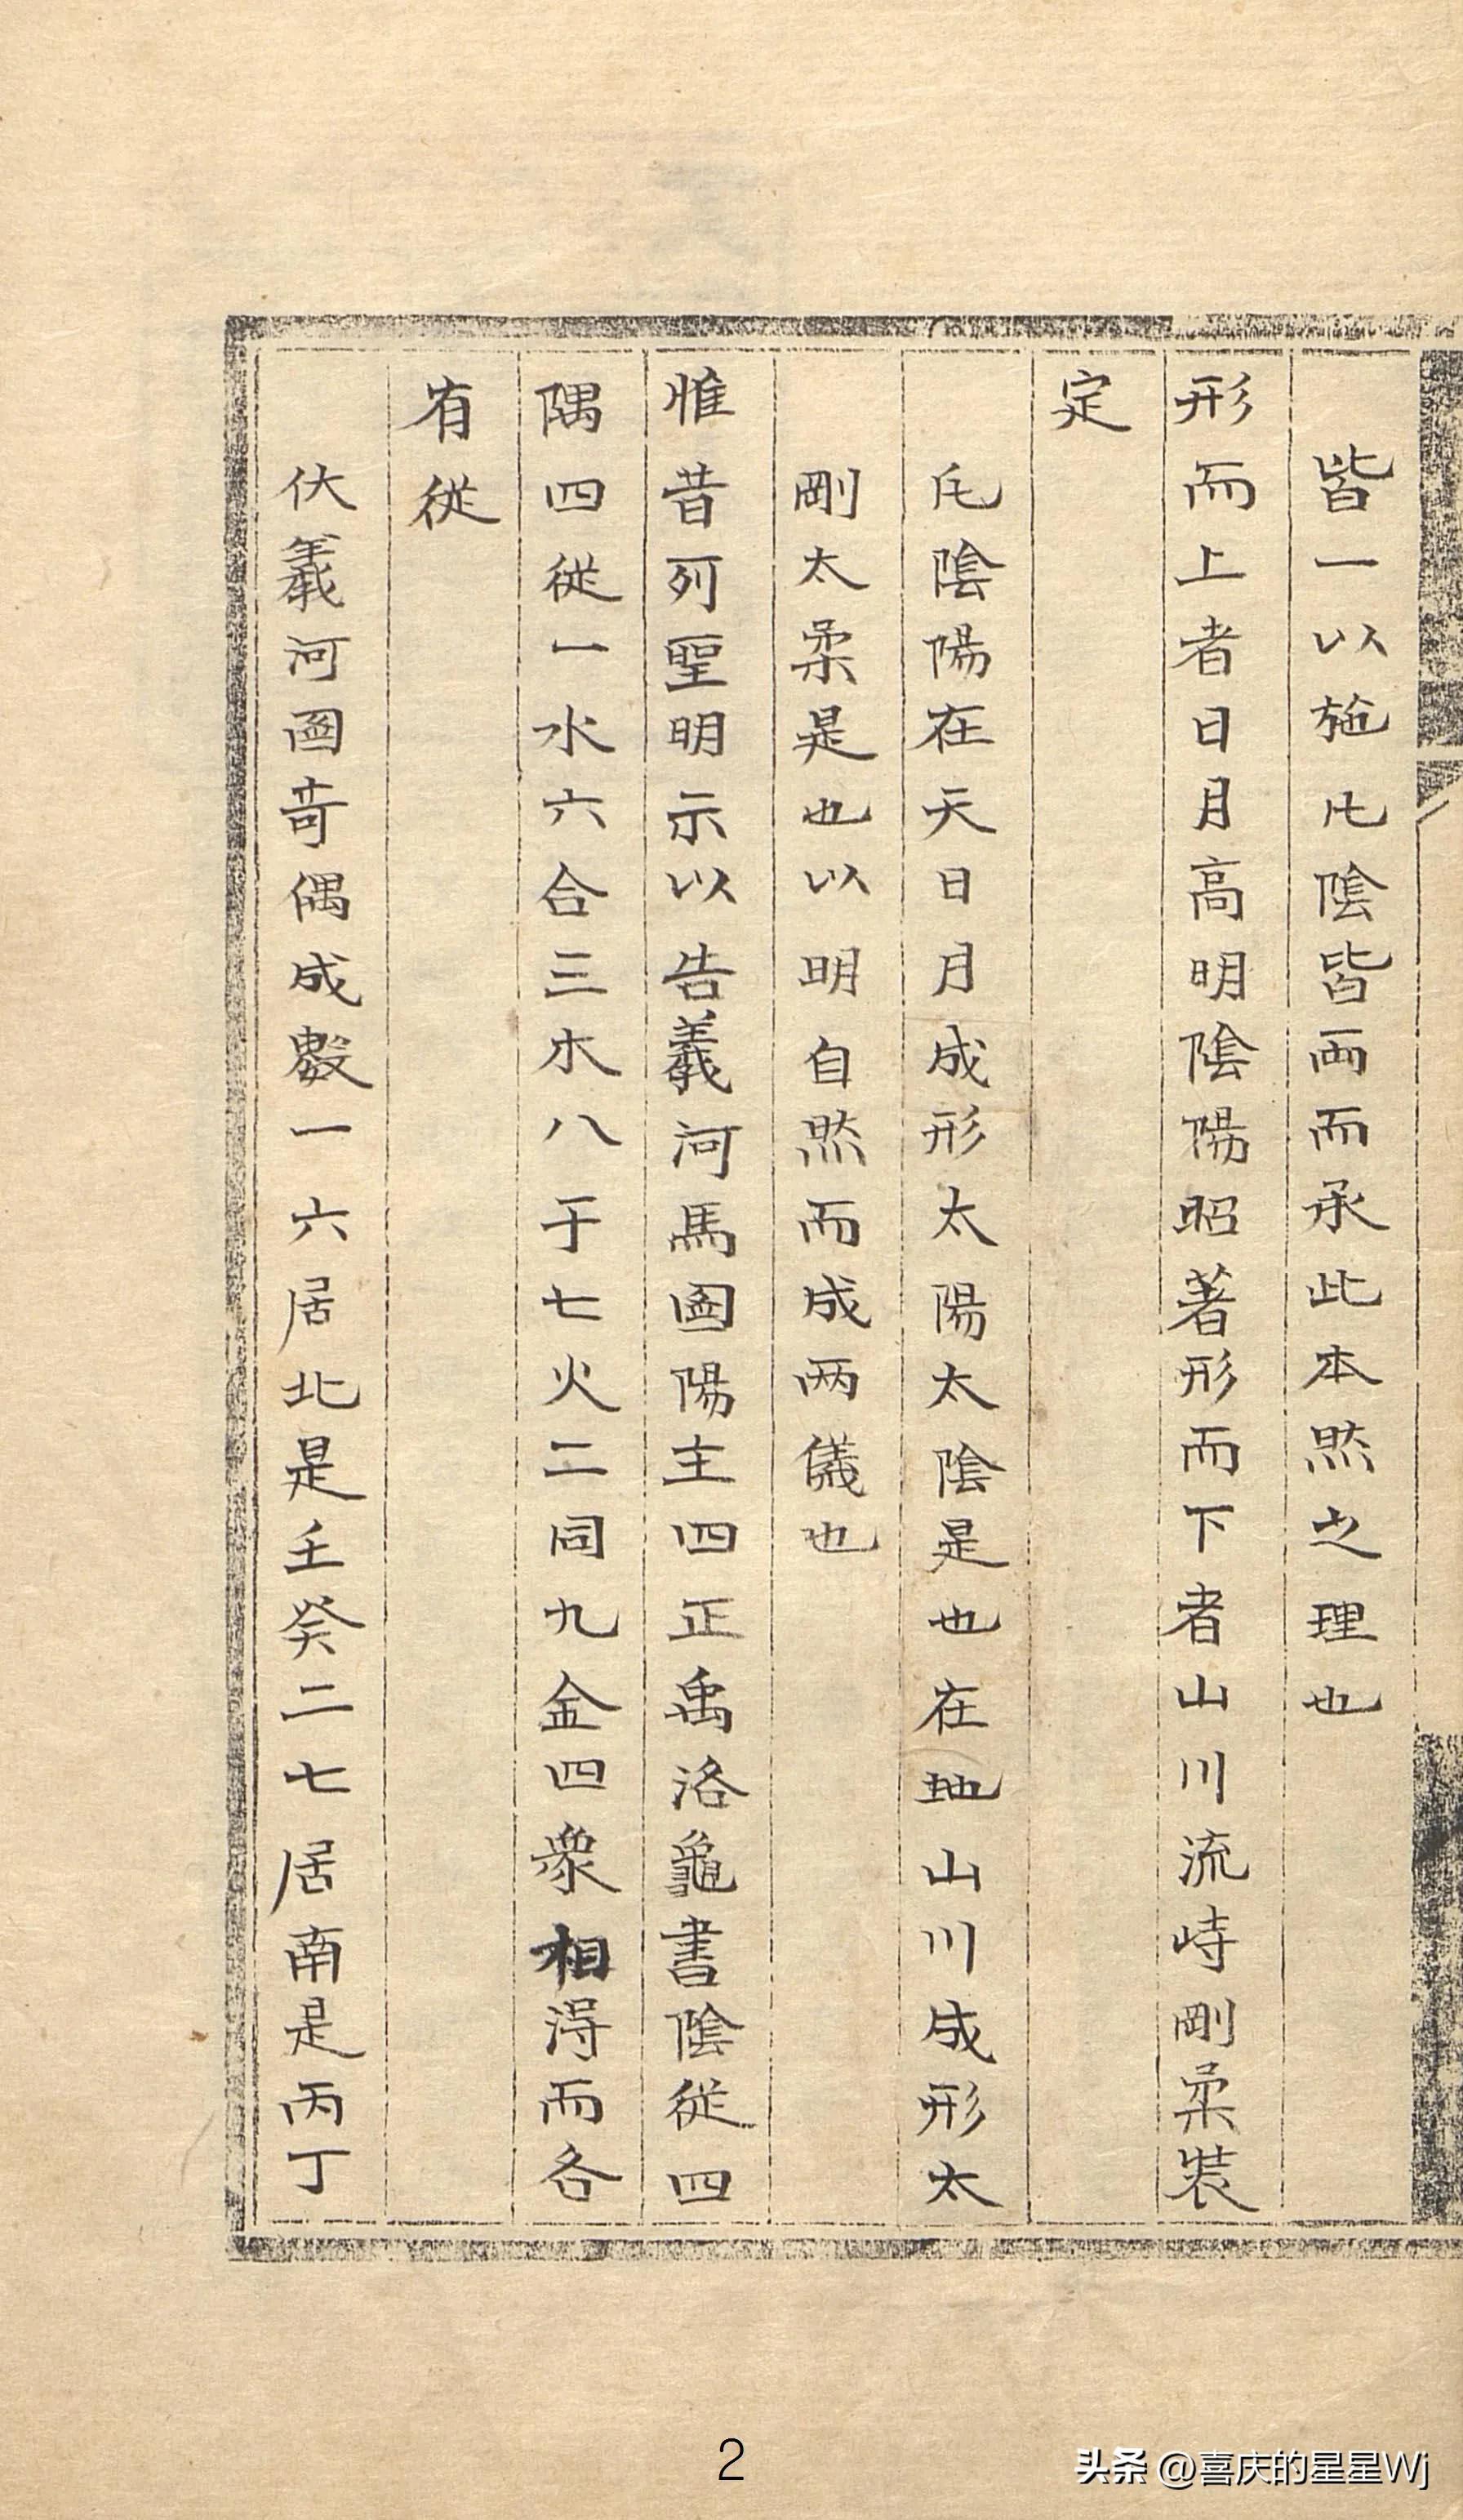 皆一以施凢陰皆兩而承此本然之理也
形而上者日月高明陰陽昭著形而下者山川流峙剛柔裝
定
凢陰陽在天日月成形太陽太陰是也在地山川成形太
剛太柔是也以明自然而成两儀也
惟昔列聖明示以告羲河馬圖陽主四正禹洛龜書陰從四
隅四從一水六合三木八于七火二同九金四衆相得而各
有從
伏羲河圖奇偶成數一六居北是壬癸二七居南是丙丁
2
头条 @喜庆的星星Wj